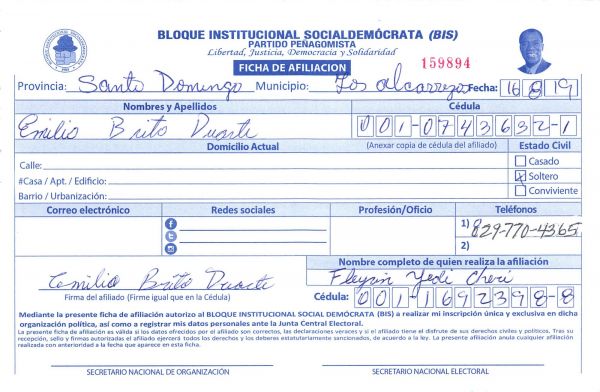 BLOQUE INSTITUCIONAL SOCIALDEMÓCRATA (BIS)
PARTIDO PEÑAGOMISTA
Libertad, Justicia, Democracia y Solidaridad
FICHA DE AFILIACION
159894
Provincia: Santo Domingo Municipio: Los alcarrizos Fecha: 16 8 19
Nombres y Apellidos Cédula
Emilio Brito Duarte 001-0743632-1
Domicilio Actual (Anexar copia de cédula del afiliado) Estado Civil
Calle: Casado
#Casa / Apt. / Edificio: X Soltero
Barrio / Urbanización: Conviviente
Correo electrónico Redes sociales Profesión/Oficio Teléfonos
1) 829-770-4365
2)
Nombre completo de quien realiza la afiliación
Emilio Brito Duarte
Firma del afiliado (Firme igual que en la Cédula) Cédula: 001-1692398-8
Mediante la presente ficha de afiliación autorizo al BLOQUE INSTITUCIONAL SOCIAL DEMÓCRATA (BIS) a realizar mi inscripción única y exclusiva en dicha
organización política, así como a registrar mis datos personales ante la Junta Central Electoral.
La presente ficha de afiliación es válida si los datos ofrecidos por el afiliado son correctos, las declaraciones veraces y si el afiliado tiene el disfrute de sus derechos civiles y políticos. Tras su
recepción, sello y firmas autorizadas el afiliado ejercerá todos los derechos y los deberes estatutariamente sancionados, de acuerdo a la ley. La presente afiliación anula cualquier afiliación
realizada con anterioridad a la fecha que aparece en esta ficha.
SECRETARIO NACIONAL DE ORGANIZACIÓN SECRETARIO NACIONAL ELECTORAL